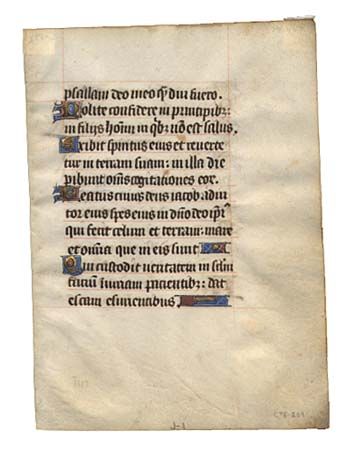 psallam deo meo q̃ diu fuero.
Nolite confidere in principibꝫ:
in filijs hoı̃m in qbꝫ nõ est salus.
Exibit spiritus eius et reverte
tur in terram suam: in illa die
peribunt om̃s cogitationes eoꝝ.
Beatus cuius deus jacob adiu
tor eius spes eius in dño deo ip̃iꝰ
qui fecit celum et terram: mare
et omnia que in eis sunt
Qui custodit veritatem in sclm̃
facit iudicium iniuriam pacientibꝫ: dat
escam esurientibus